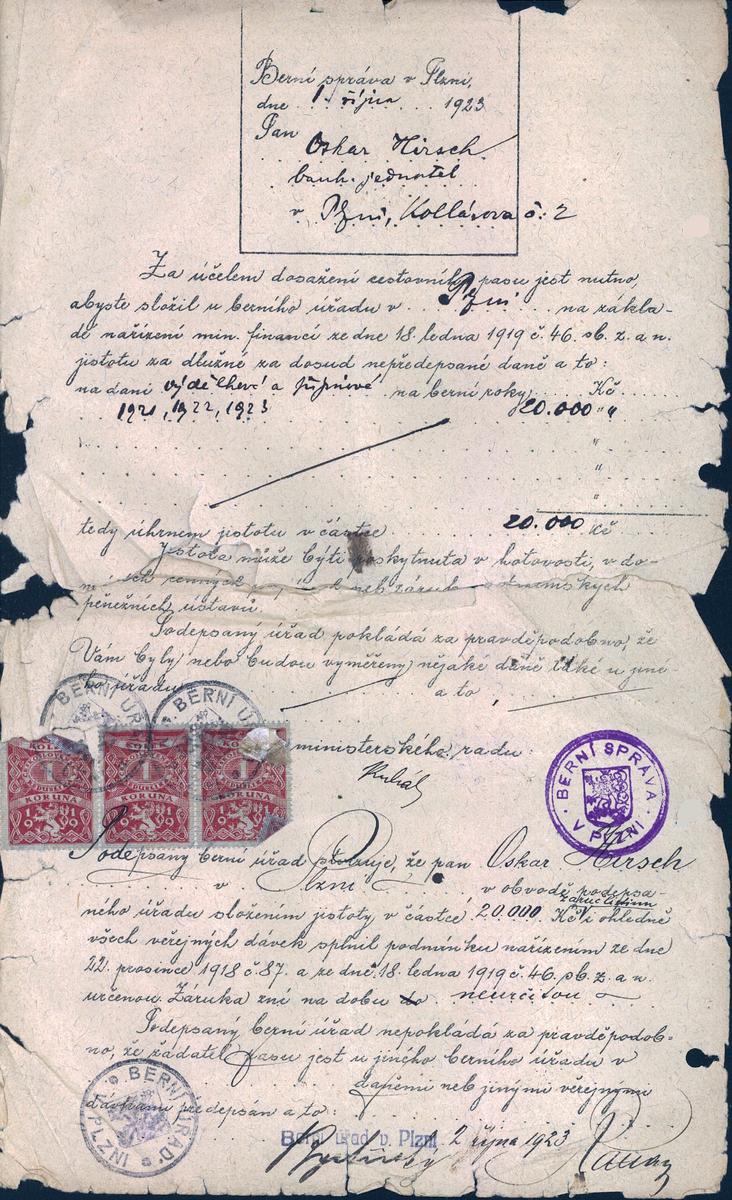 Berní správa v Plzni,
dne 1. října 1923
Pan
Oskar Hirsch
bank. jednatel
v Plzni, Kollárova č: 2
Za účelem dosažení cestovního pasu jest nutno,
abyste složil u berního úřadu v Plzni na zákla-
dě nařízení min. financí ze dne 18. ledna 1919 č. 46. sb. z. a n.
jistotu za dlužné za dosud nepředepsané daně a to:
na dani výdělkové a příjmové na berní roky Kč
1921, 1922, 1923 20.000 "
"
"
"
tedy úhrnem jistotu v částce 20.000 Kč
Jistota může býti poskytnuta v hotovosti, v do-
cenných
peněžních ústavů.
Podepsaný úřad pokládá za pravděpodobno, že
Vám byly nebo budou vyměřeny nějaké daně také u jiné-
ho úřadu a to
BERNÍ ÚŘ
BERNÍ ÚŘ
ministerského radu:
KOLEK
1
KORUNA
1919
KOLEK
1
KORUNA
1919
KOLEK
1
KORUNA
BERNÍ SPRÁVA
V PLZNI
Podepsaný berní úřad stvrzuje, že pan Oskar Hirsch
v Plzni v obvodě podepsa-
ného úřadu složením jistoty v částce 20.000 Kč i ohledně
všech veřejných dávek splnil podmínku nařízením ze dne
22. prosince 1918 č. 87. a ze dne 18. ledna 1919 č. 46. sb. z. a n.
určenou. Záruka zní na dobu neurčitou
Podepsaný berní úřad nepokládá za pravděpodob-
no, že žadatel pasu jest u jiného berního úřadu v
daněmi neb jinými veřejnými
dávkami předepsán a to:
BERNÍ ÚŘAD
V PLZNI
Berní úřad v Plzni 2 října 1923